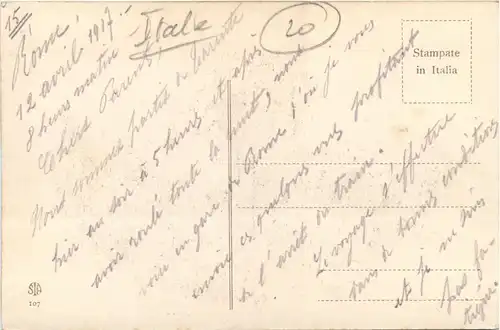 15
Itale
20
Rome
12 avril 1917.-
8 heures matin
Chers Parents
Nous sommes partis de
hier au soir à 5 heures et après
avoir roulé toute la nuit, nous
voici en gare de Rome d'où je vous
envoie ces quelques mots profitant
de l'arrêt du train.
Le voyage s'effectue
dans de bonnes conditions
et je ne suis
pas fa-
tigué.
Stampate
in Italia
STA
107